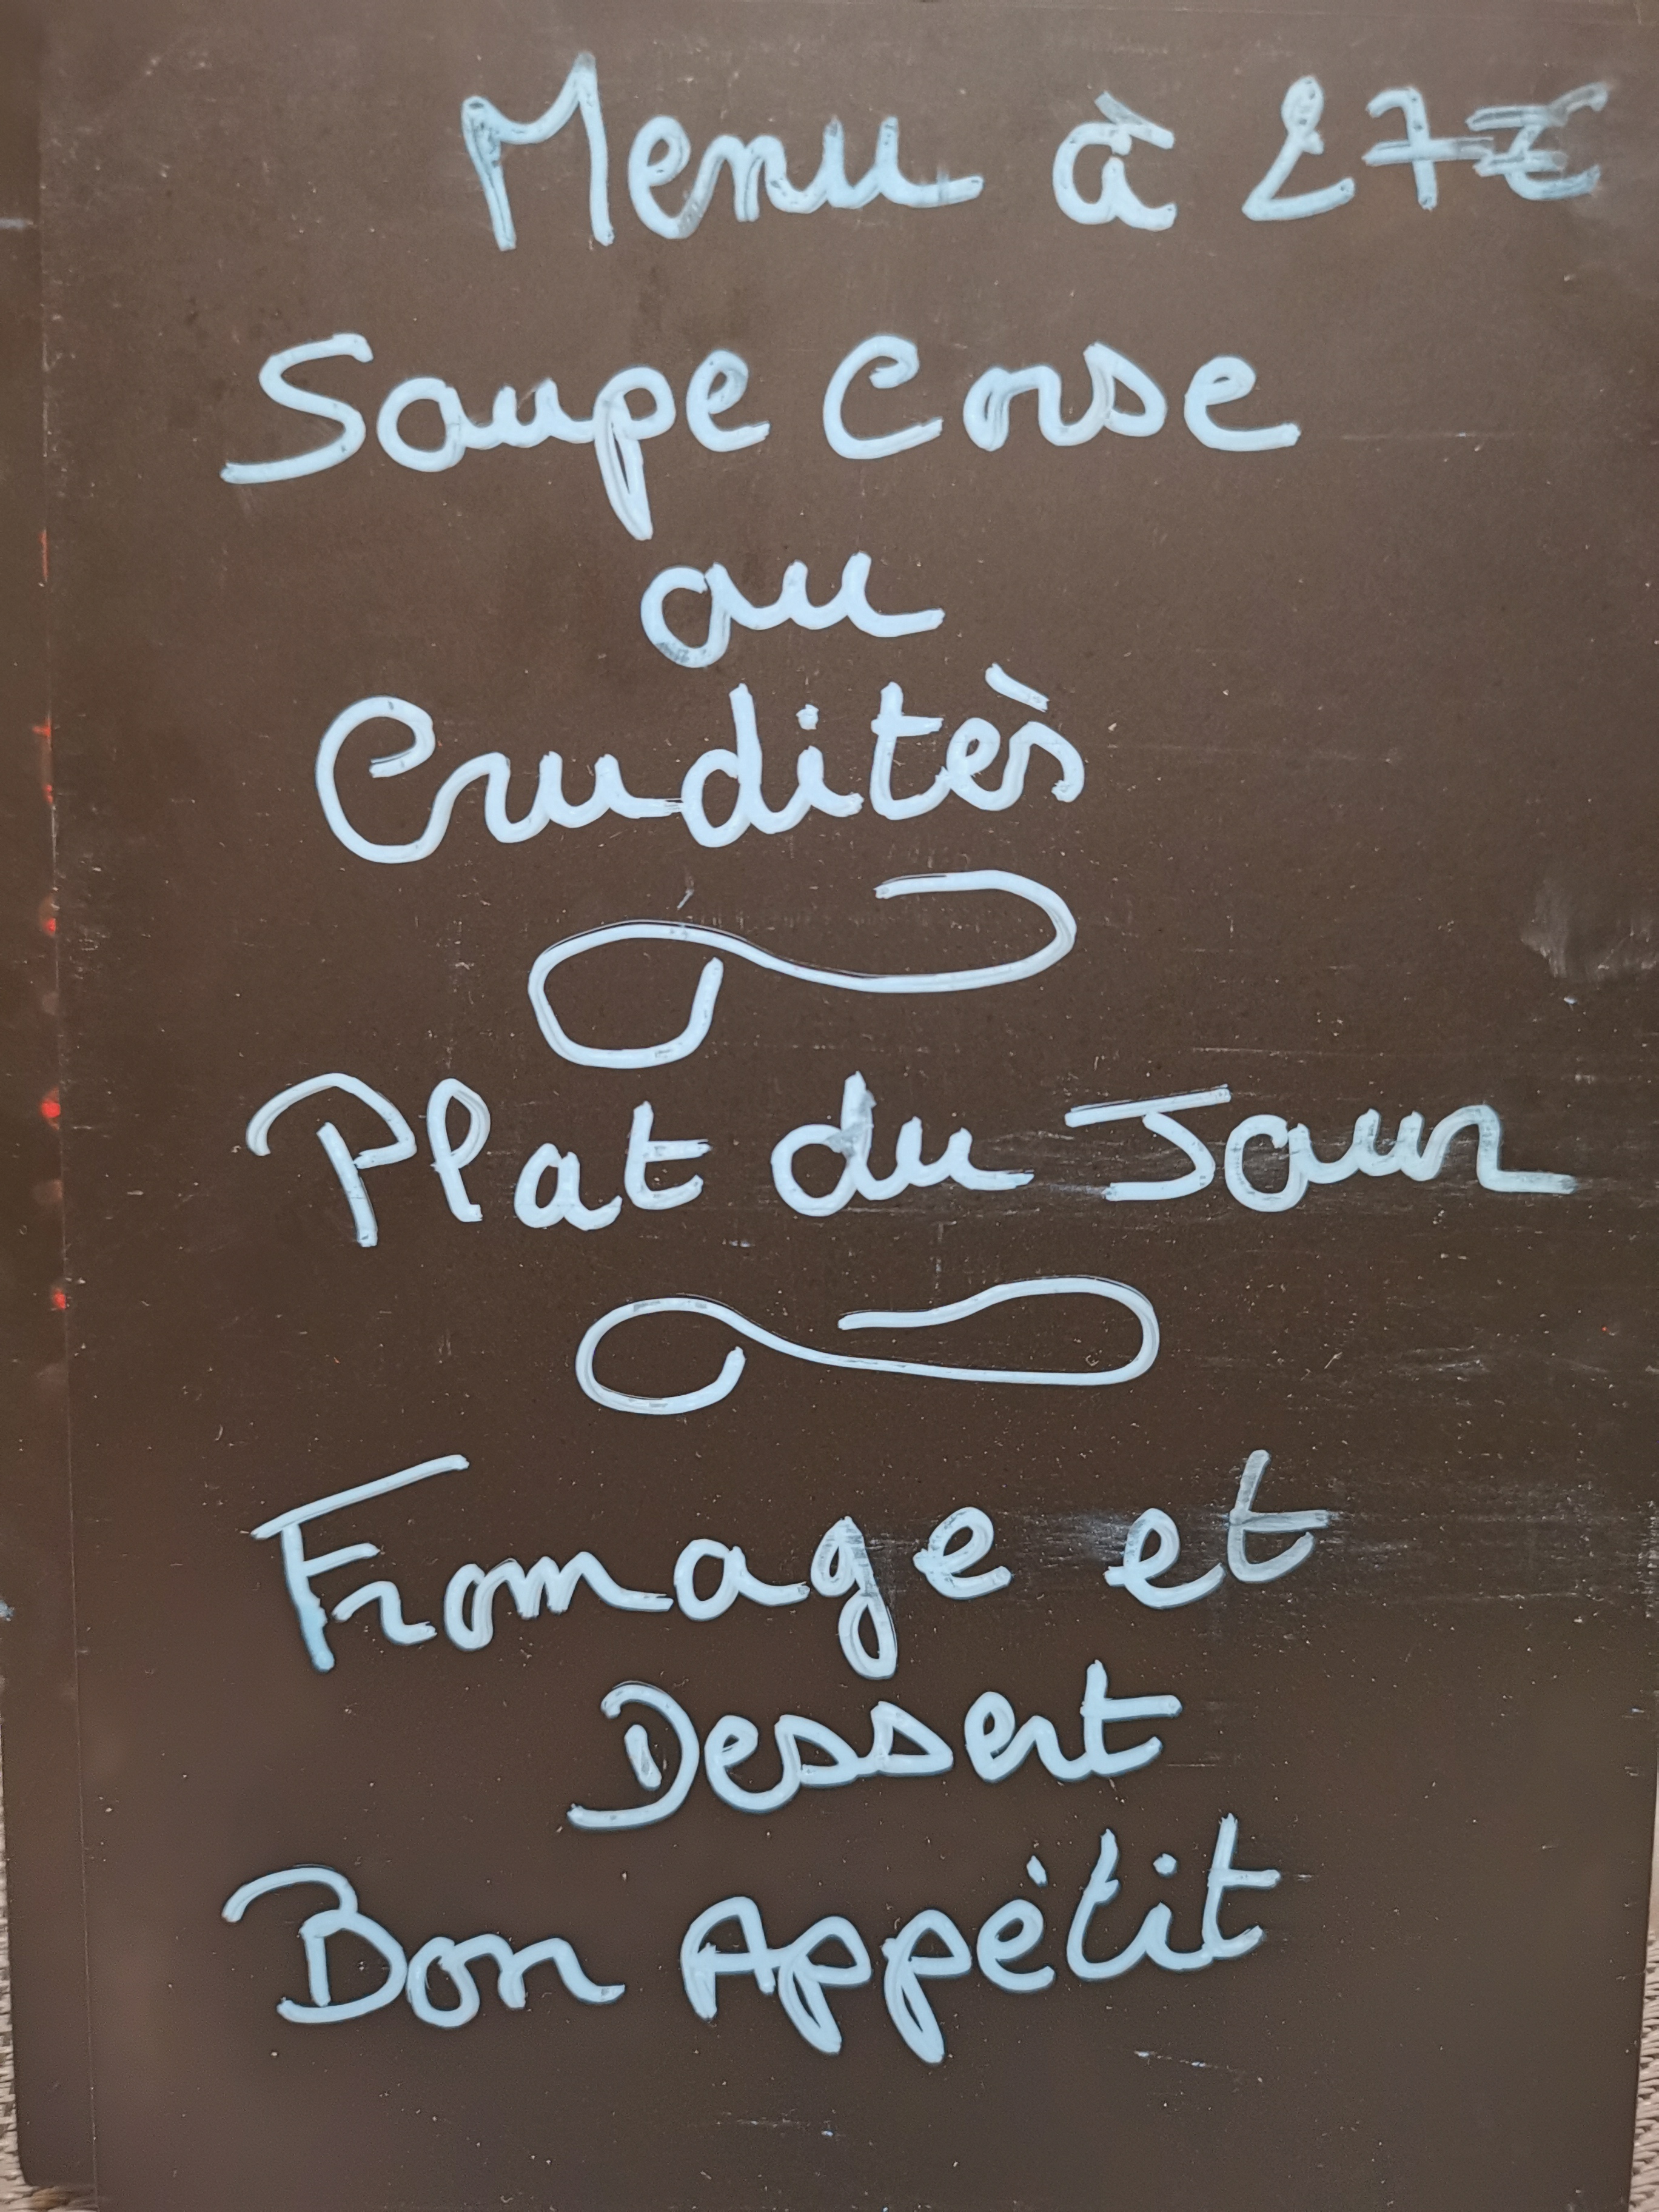 Menu à 27€
Soupe Corse
ou
Cruditès
Plat du Jour
Fromage et
Dessert
Bon Appétit